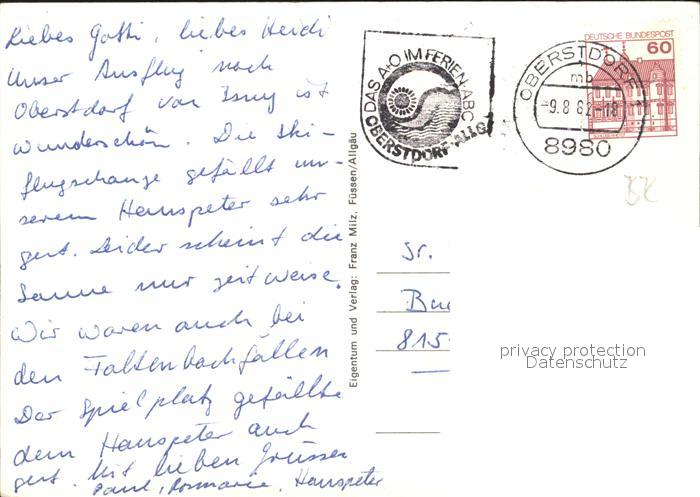 Liebes Gotti, liebes Heidi
Unser Ausflug nach
Oberstdorf von Isny ist
wunderschön. Die Ski-
flugschanze gefällt un-
serem Hanspeter sehr
gut. Leider scheint die
Sonne nur zeitweise.
Wir waren auch bei
den Faltenbachfällen
Der Spielplatz gefällte
dem Hanspeter auch
gut. Mit lieben Grüssen
Paul, Rosmarie, Hanspeter
Eigentum und Verlag: Franz Milz, Füssen/Allgäu
DAS A+O IM FERIEN-ABC
OBERSTDORF-ALLG
OBERSTDORF 1
mb
-9.8.82-18
8980
DEUTSCHE BUNDESPOST
60
815
privacy protection
Datenschutz